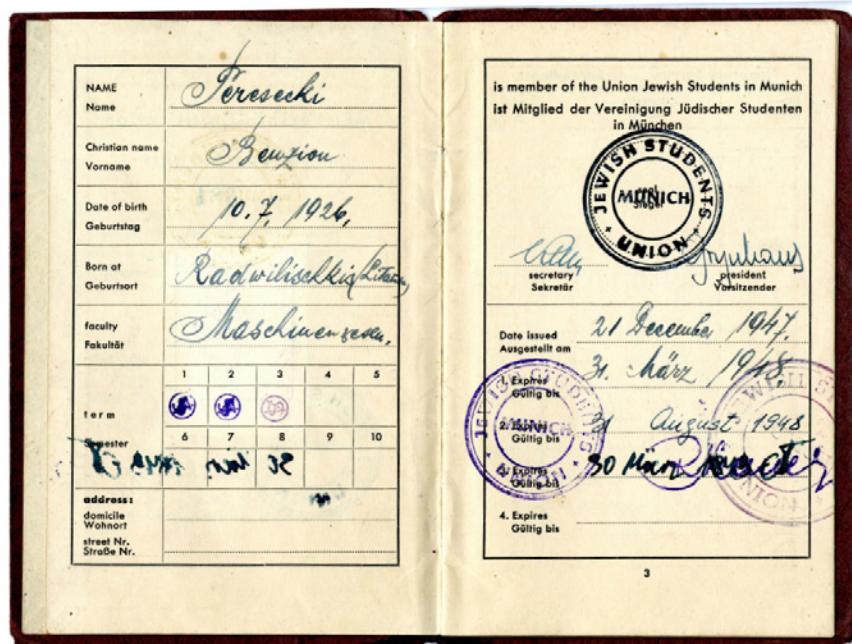 NAME
Name
Peresecki
Christian name
Vorname
Benzion
Date of birth
Geburtstag
10.7. 1926,
Born at
Geburtsort
Radwilischkis (Litauen)
faculty
Fakultät
Maschinenwesen,
1 2 3 4 5
term
Semester
6 7 8 9 10
address:
domicile
Wohnort
street Nr.
Straße Nr.
is member of the Union Jewish Students in Munich
ist Mitglied der Vereinigung Jüdischer Studenten
in München
JEWISH STUDENTS
MUNICH
seal
Siegel
UNION
secretary
Sekretär
president
Vorsitzender
Date issued
Ausgestellt am
21 December 1947,
1. Expires
Gültig bis
31. März 1948,
2. Expires
Gültig bis
31 August 1948
3. Expires
Gültig bis
30 März
JEWISH STUDENTS
MUNICH
UNION
4. Expires
Gültig bis
3